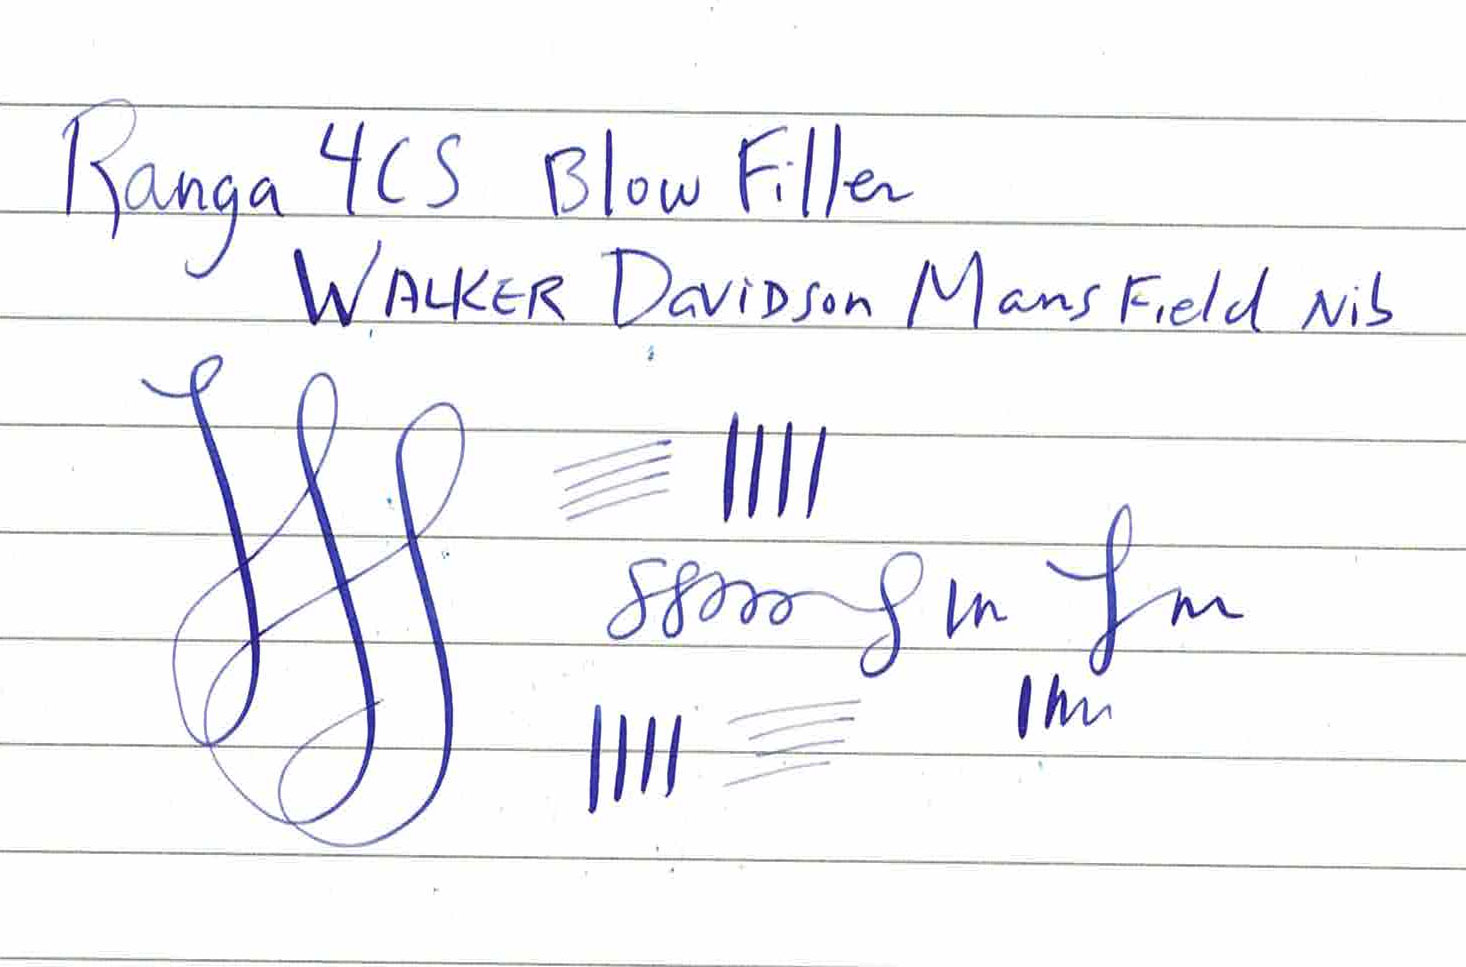 Ranga 4CS Blow Filler
WALKER Davidson Mansfield Nib